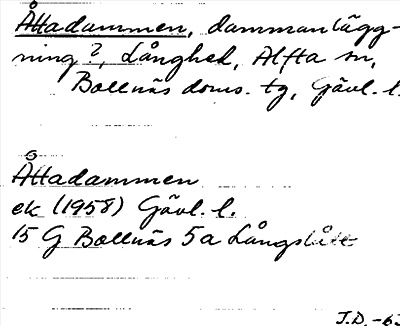 Åttadammen, dammanlägg-
ning?, Långhed, Alfta sn,
Bollnäs doms. tg, Gävl. l.
Åttadammen
ek (1958) Gävl. l.
15 G Bollnäs 5a Långslått
J.D. -63